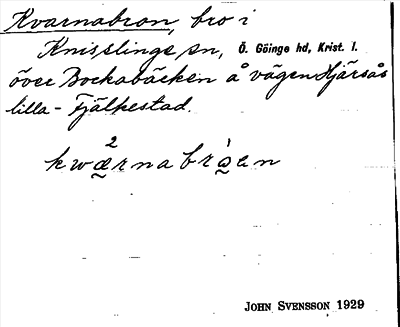 Kvarnabron, bro i
Knislinge sn, Ö. Göinge hd, Krist. l.
över Bockabäcken å vägen Hjärsås
lilla - Fjälkestad.
2
kwærnabråen
JOHN SVENSSON 1929